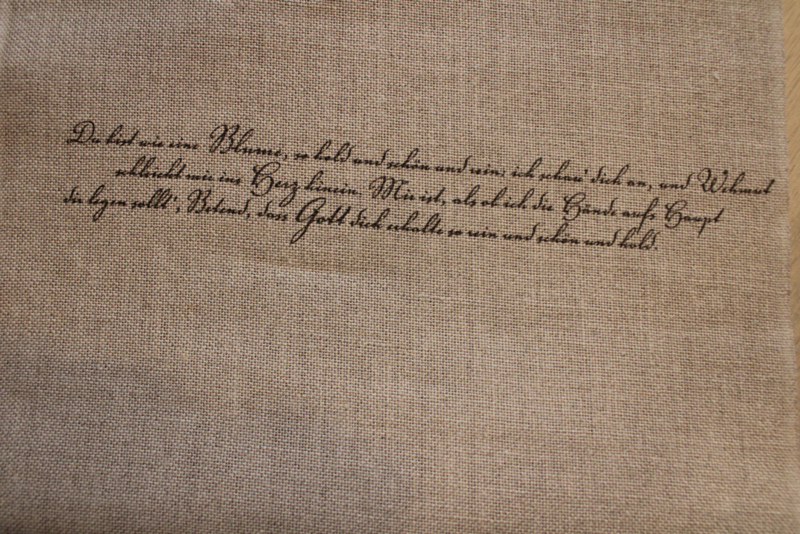 Du bist wie eine Blume, so hold und schön und rein; ich schau' dich an, und Wehmut
schleicht mir ins Herz hinein. Mir ist, als ob ich die Hände aufs Haupt
dir legen sollt', Betend, dass Gott dich erhalte so rein und schön und hold.